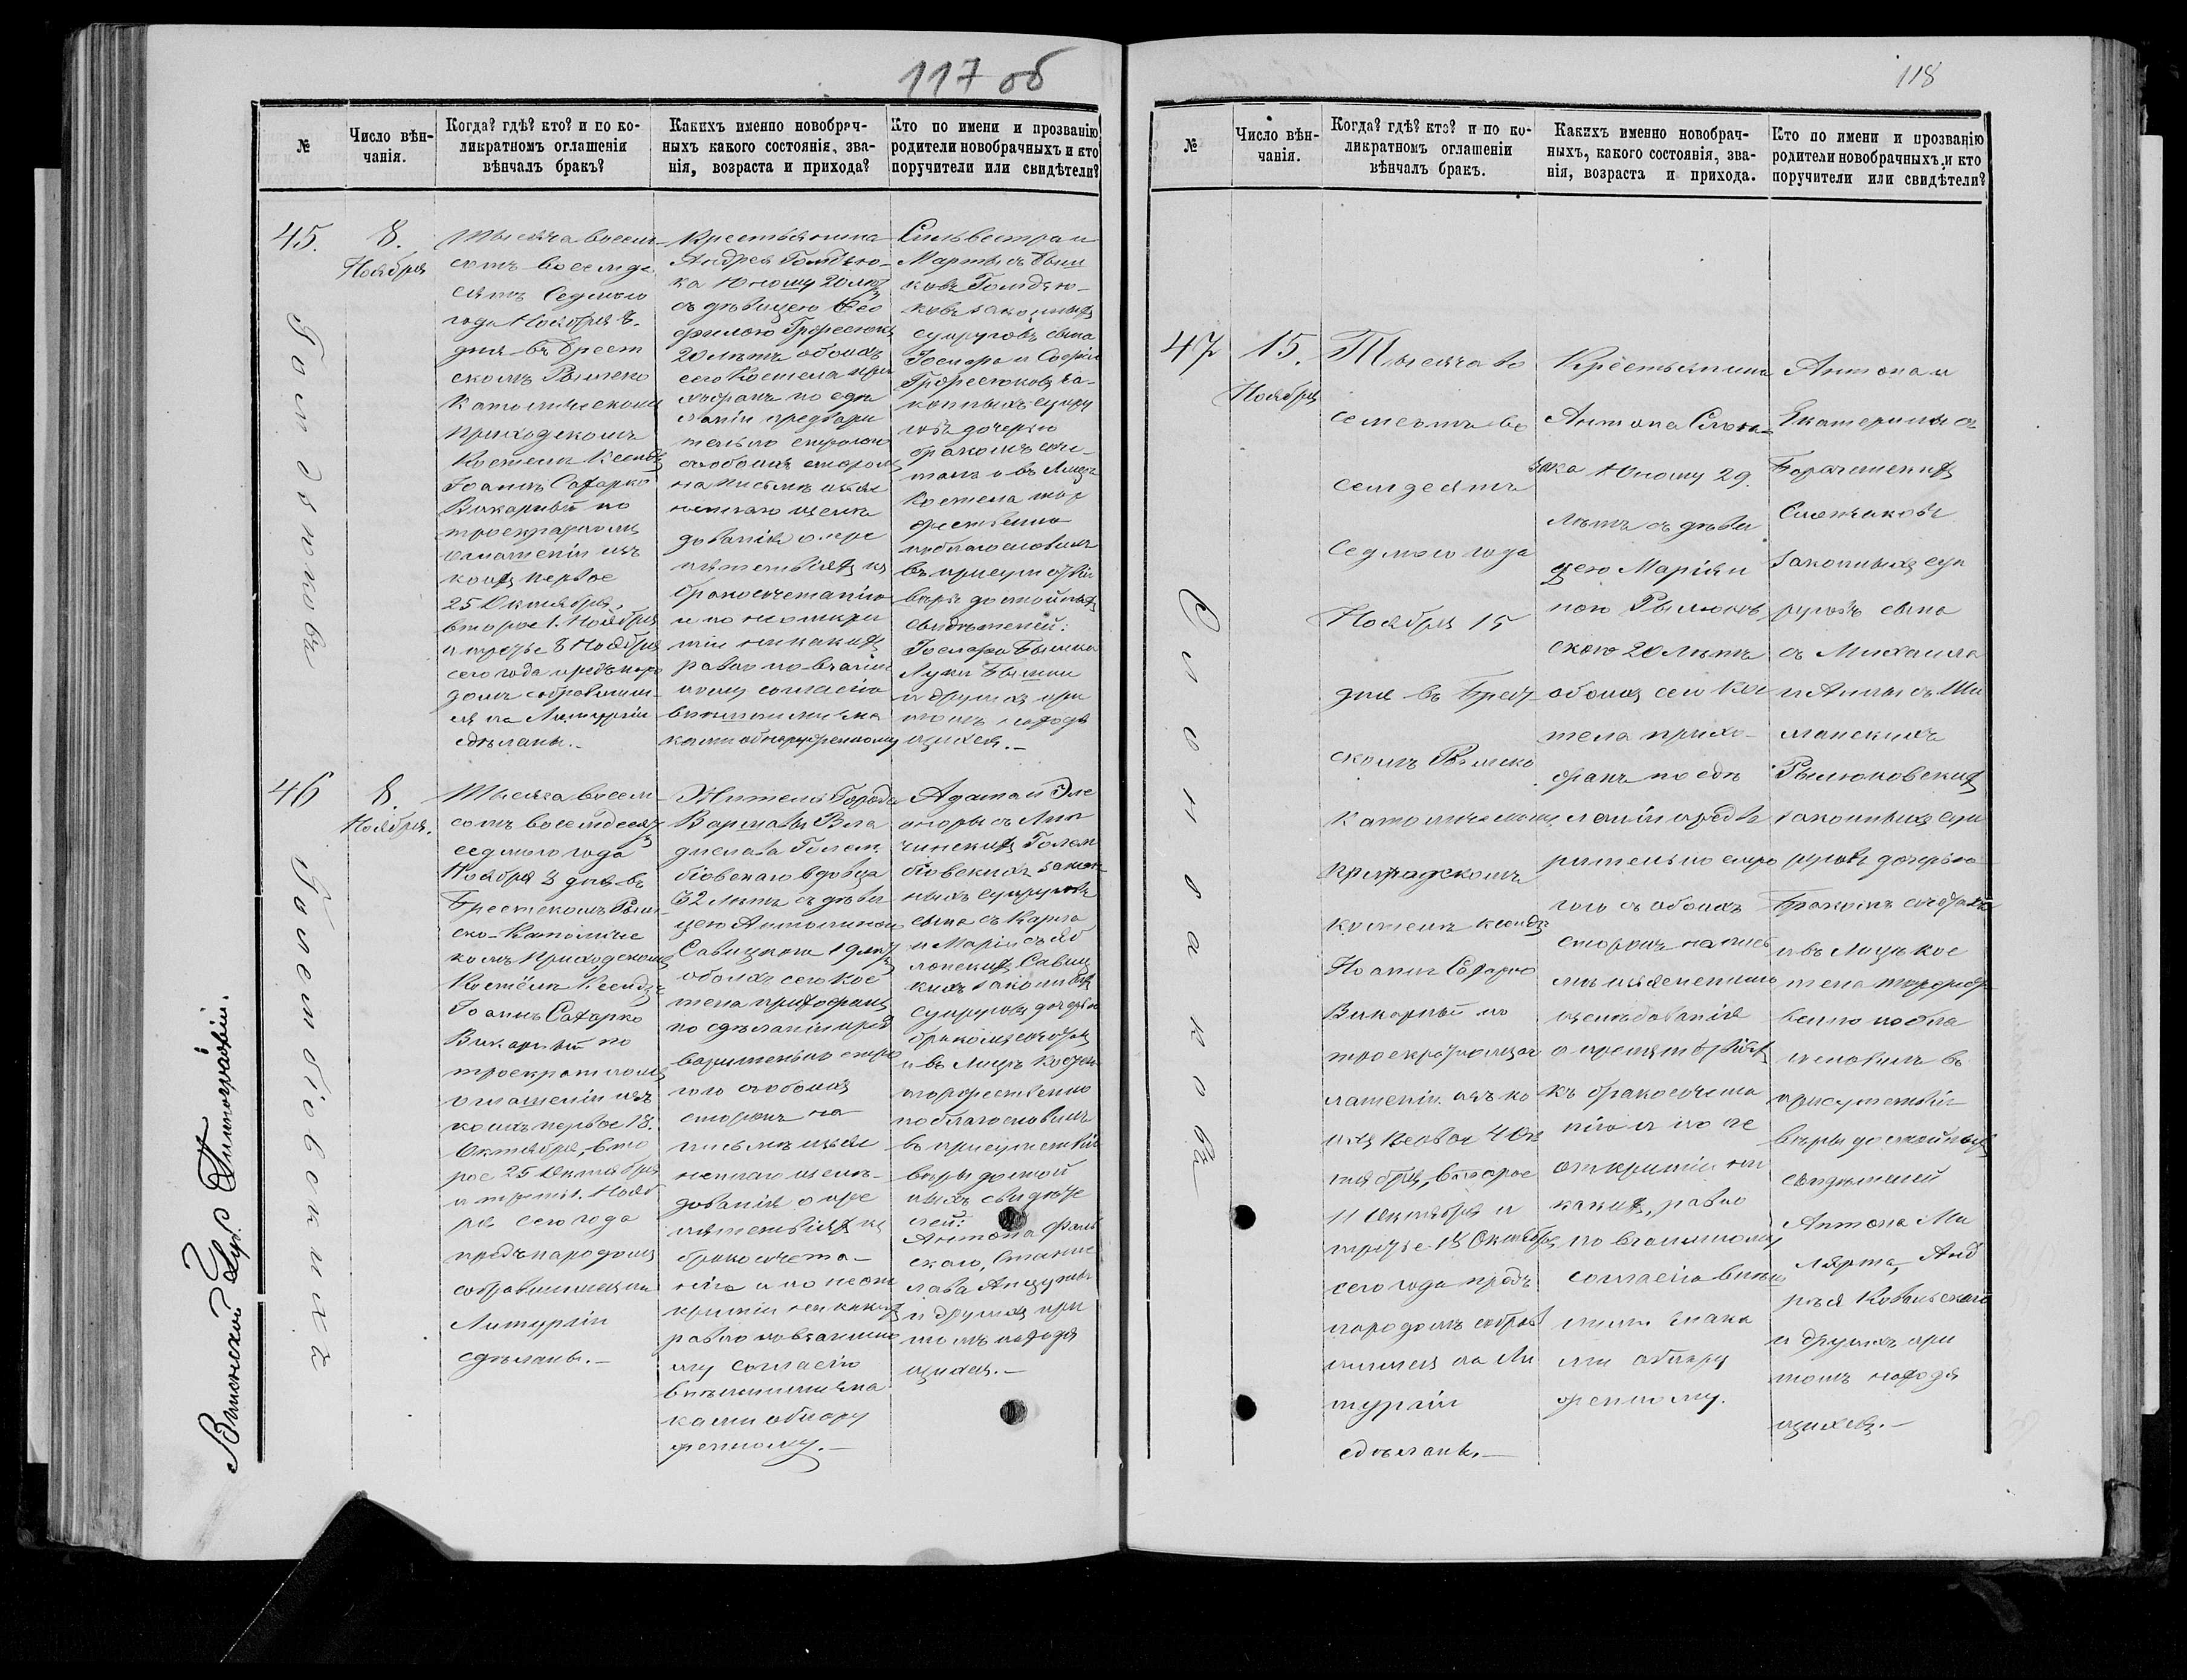 117 об
№
Число вѣн-
чанія.
Когда? гдѣ? кто? и по ко-
ликратномъ оглашеніи
вѣнчалъ бракъ?
Какихъ именно новобрач-
ныхъ какого состоянія, зва-
нія, возраста и прихода?
Кто по имени и прозванію
родители новобрачныхъ и кто
поручители или свидѣтели?
45.
8.
Ноября
Тысяча восем-
сотъ восемде
сятъ Седмого
года Ноября 8.
дня въ Брест
скомъ Римско
Католическомъ
приходскомъ
Костелѣ Ксендзъ
Іоаннъ Сахарко
Викарный по
троекратномъ
оглашеніи изъ
коихъ первое
25 Октября,
второе 1. Ноября
и третье 8 Ноября
сего года предъ наро
домъ собравшим-
ся на Литургіи
сдѣланы.-
Крестьянина
Андрея Гомдзю-
ка Юношу 20 лѣтъ
съ дѣвицею Ѳео
филою
20 лѣтъ обоихъ
сего Костела при
хожанъ по сдѣ
ланіи предвари
тельно строгаго
съ обоихъ сторонъ
на письмѣ изъяс
неннаго изслѣ
дованія о пре
пятствіяхъ къ
бракосочетанію
и по неоткры
тіи никакихъ
равно по взаим
ному согласію
внѣшними зна
ками обнаруженному
Сильвестра и
Марты съ
ковъ Гомдзю-
ковъ законныхъ
супруговъ сына
Госпера и Софіи
за-
конныхъ супру
говъ дочерью
бракомъ соче-
талъ и въ Лицѣ
Костела тор
жественно
поблагословилъ
въ присутствіи
вѣры достойныхъ
свидѣтелей:
Луки
и другихъ при
томъ находя
щихся.-
46
8.
Ноября.
Тысяча восем-
сотъ восемдесят
седмого года
Ноября 8 дня въ
Брестскомъ Рим-
ско-Католиче
комъ Приходскомъ
Костёлѣ Ксендзъ
Іоаннъ Сахарко
Викарный по
троекратномъ
оглашеніи изъ
коихъ первое 18.
Октября, вто
рое 25 Октября
и третіе 1. Нояб
ря сего года
предъ народомъ
собравшимся на
Литургіи
сдѣланы.-
Жителя Города
Варшавы Вла
дислава Голем
біовскаго вдовца
32 лѣтъ съ дѣви
цею Антониною
Савицкою 19 лѣтъ
обоихъ сего Кос
тела прихожанъ
по сдѣланіи пред
варительно стро
гого съ обоихъ
сторонъ на
письмѣ изъяс
неннаго изслѣ-
дованія о пре
пятствіяхъ къ
бракосочета-
нію и по неот
крытіи никакихъ
равно по взаимно
му согласію
внѣшними зна
ками обнару
женному.-
Адама и Эле
оноры съ Лип
чинскихъ Голем
біовскихъ закон
ныхъ супруговъ
сына съ Карла
и Маріи съ Яб
лонскихъ Савиц
кихъ законныхъ
супруговъ дочерью
бракомъ сочеталъ
и въ Лицѣ Костела
торжественно
поблагословилъ
въ присутствіи
вѣры достой
ныхъ свидѣте
лей:
Антона
скаго, Станис
лава
и другихъ при
томъ находя
щихся.-
Гомдзюковъ
Голембіовскихъ
Виленской Губ. Типографіи.
118
№
Число вѣн-
чанія.
Когда? гдѣ? кто? и по ко-
ликратномъ оглашеніи
вѣнчалъ бракъ.
Какихъ именно новобрач-
ныхъ, какого состоянія, зва-
нія, возраста и прихода.
Кто по имени и прозванію
родители новобрачныхъ и кто
поручители или свидѣтели?
47
15.
Ноября
Тысяча во
семсотъ во
семдесятъ
седмого года
Ноября 15
дня въ Брест
скомъ Римско
Католическомъ
приходскомъ
костелѣ ксендзъ
Іоаннъ Сахарко
Викарный по
троекратномъ ог
лашеніи изъ ко
ихъ первое 4 Ок
тября, второе
11 Октября и
третье 18 Октября
сего года предъ
народомъ собрав
шимся на Ли
тургіи
сдѣланы.-
Крестьянина
Антона Слон-
чака Юношу 29.
лѣтъ съ дѣви
цею Маріян
ною
скою 20 лѣтъ
обоихъ сего Кос
тела прихо-
жанъ по сдѣ
ланіи предва
рительно стро
гого съ обоихъ
сторонъ на пись
мѣ изъясненнаго
изслѣдованія
о препятствіяхъ
къ бракосочета
нію и по не
открытіи ни
какихъ, равно
по взаимному
согласію внѣш
ними знака
ми обнару
женному.
Антона и
Екатерины съ
Слончаковъ
законныхъ суп
руговъ сына
съ Михаила
и Анны съ Ши
манскихъ
законныхъ суп
руговъ дочерью
Бракомъ сочеталъ
и въ Лицѣ Кос
тела торжест
венно побла
гословилъ въ
присутствіи
вѣры достойныхъ
свидѣтелей
Антона
Анд
рея Ковальскаго
и другихъ при
томъ находя
щихся.-
Слончаковъ